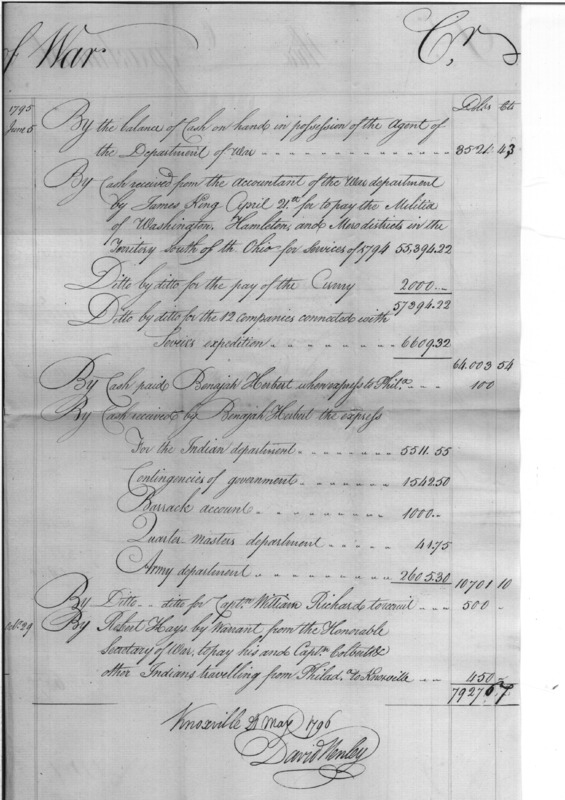 of War. Cr
Dolls Cts
1795
June 5 By the balance of Cash on hand in possession of the Agent of
the Department of War 3521.43
By Cash received from the Accountant of the War department
by James King April 21st for to pay the Militia
of Washington, Hamilton, and Mero districts in the
Territory South of th Ohio for Services of 1794 55,394.22
Ditto by ditto for the pay of the Army 2000..
57394.22
Ditto by ditto for the 12 companies connected with
Seveirs expedition 6609.32
64.003 54
By Cash paid Benajah Herbert when express to Phila. 100
By Cash received by Benajah Herbert the express
For the Indian department 5511.55
Contingencies of government 1542.50
Barrack account 1000..
Quarter-masters department 41.75
Army department 2605.30 10701 10
By Ditto ditto for Captn William Richard to recruit 500
By Robert Hays by Warrant from the Honorable
Secretary of War, to pay his and Captn Colbert &c
other Indians travelling from Philad.a to Knoxville 450
79276.7
Knoxville 21 May 1796
David Henley